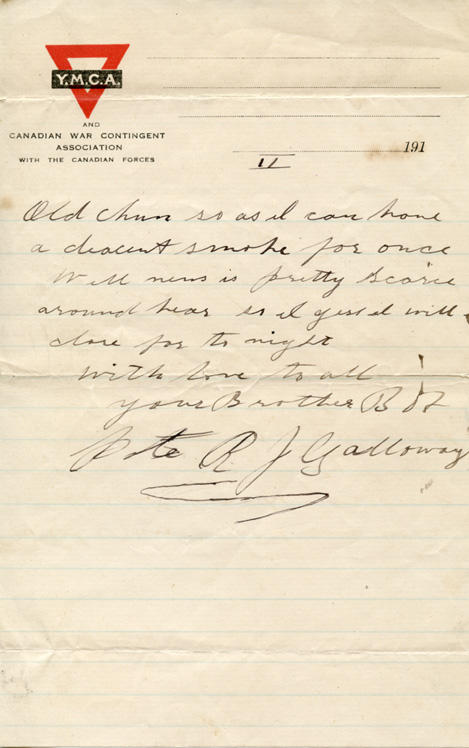 Y.M.C.A.
AND
CANADIAN WAR CONTINGENT
ASSOCIATION
WITH THE CANADIAN FORCES
191
II
Old Chum so as I can have
a deacent smoke for once
Well news is pretty scarce
around hear so I gess I will
close for to night
With love to all
your Brother
Pte R J Galloway